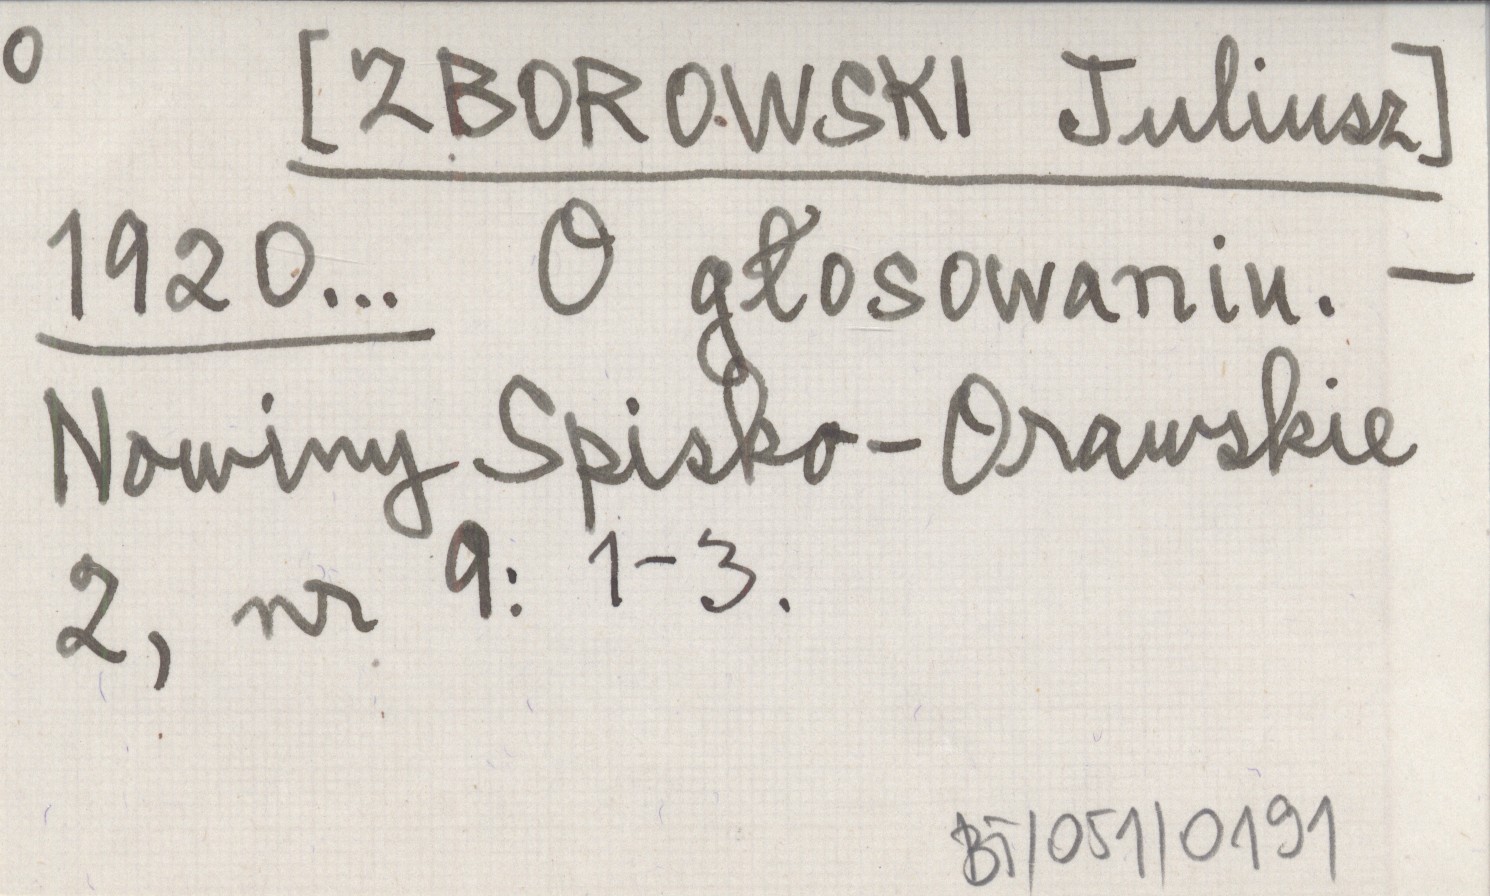 o [ZBOROWSKI Juliusz]
1920... O głosowaniu. —
Nowiny Spisko-Orawskie
2, nr 9: 1-3.
BT/051/0191